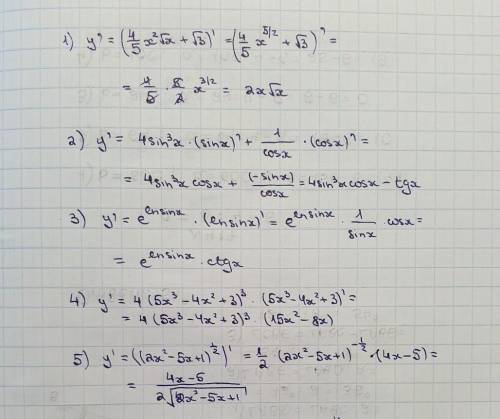 1) y' = (4/5 x²√x + √3)' = (4/5 x^(5/2) + √3)' =
= 4/5 · 5/2 x^(3/2) = 2x√x
2) y' = 4sin³x · (sinx)' + 1/cosx · (cosx)' =
= 4sin³x cosx + (-sinx)/cosx = 4sin³x cosx - tgx
3) y' = e^(ln sinx) · (ln sinx)' = e^(ln sinx) · 1/sinx · cosx =
= e^(ln sinx) · ctgx
4) y' = 4 (5x³ - 4x² + 3)³ · (5x³ - 4x² + 3)' =
= 4 (5x³ - 4x² + 3)³ · (15x² - 8x)
5) y' = ((2x² - 5x + 1)^(1/2))' = 1/2 · (2x² - 5x + 1)^(-1/2) · (4x - 5) =
= (4x - 5)/(2√(2x² - 5x + 1))